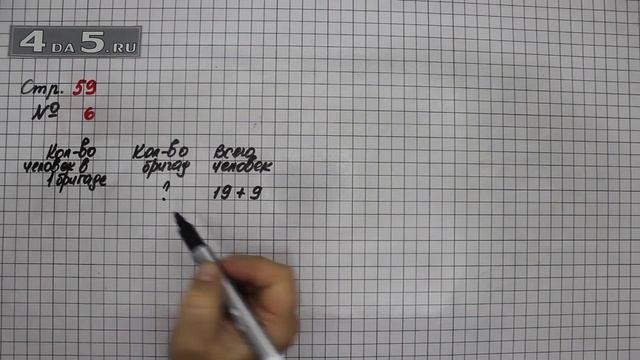 4DA5.RU
Стр. 59
№ 6
Кол-во человек в 1 бригаде
Кол-во бригад
Всего человек
?
19 + 9